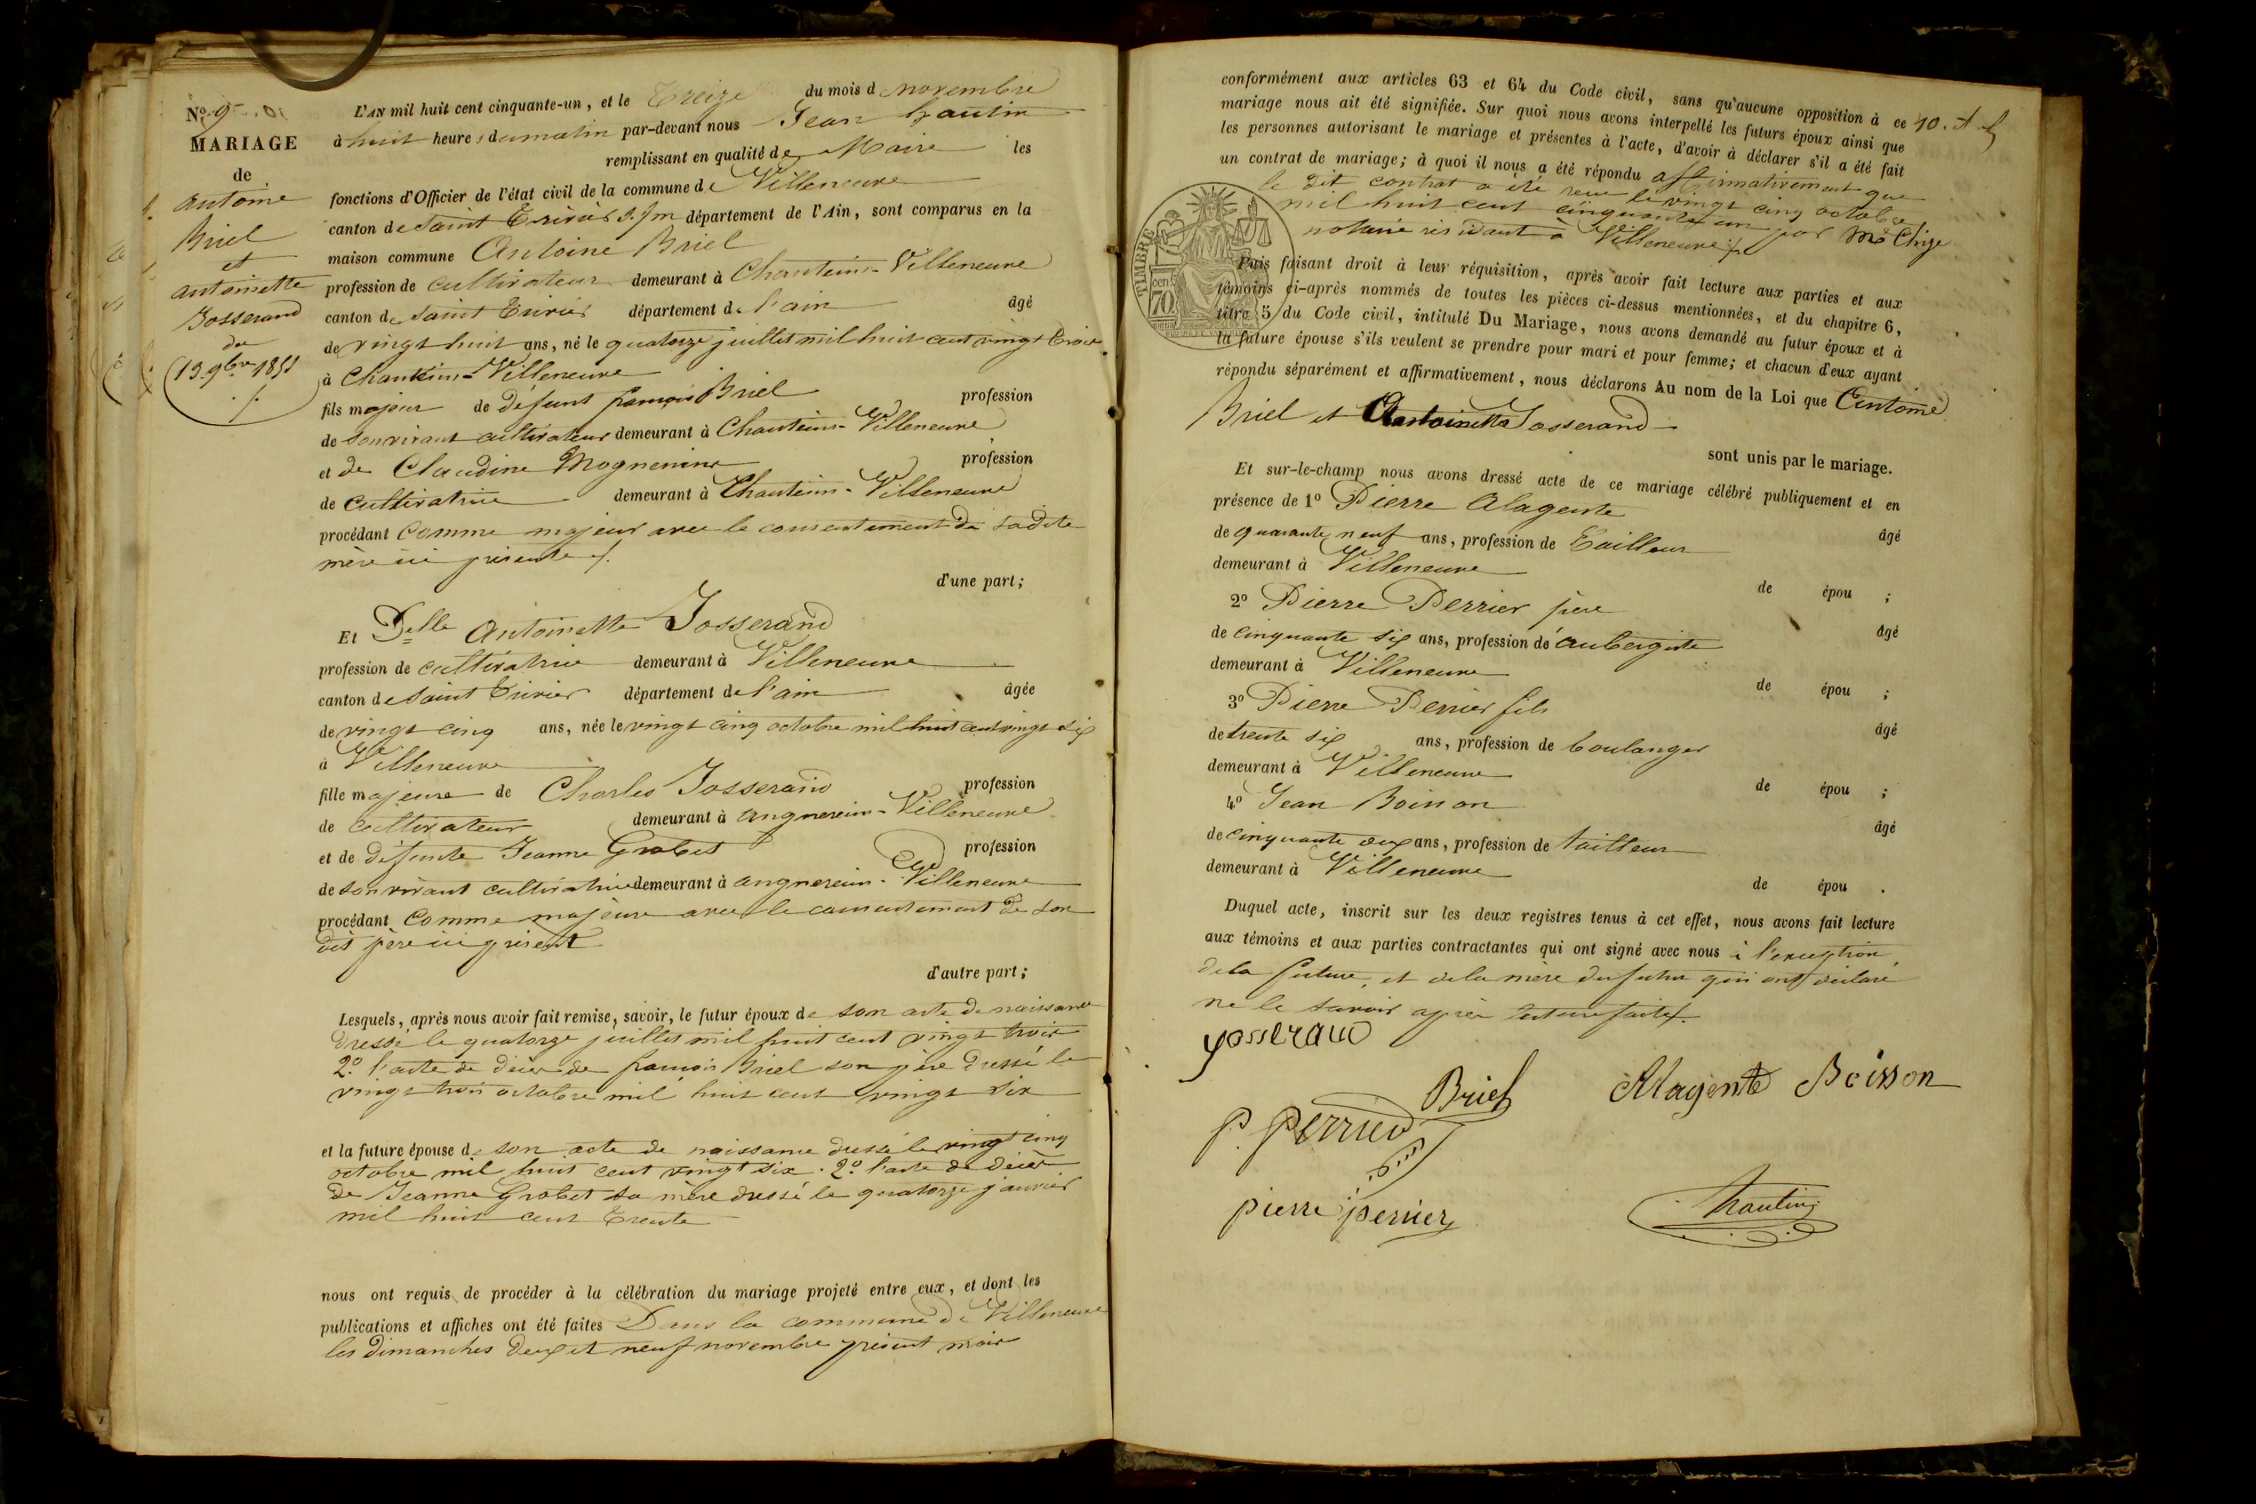 N.º 9
MARIAGE
de
antoine
Briel
et
antoinette
Josserand
du
13 9bre 1851
L'AN mil huit cent cinquante-un, et le Treize du mois d novembre
à huit heures du matin par-devant nous Jean hautin
remplissant en qualité de Maire les
fonctions d'Officier de l'état civil de la commune de Villeneuve
canton de Saint Trivier s. m département de l'Ain, sont comparus en la
maison commune Antoine Briel
profession de cultivateur demeurant à Chanteins-Villeneuve
canton de Saint Trivier département de l'ain âgé
de vingt huit ans, né le quatorze juillet mil huit cent vingt trois
à Chanteins-Villeneuve
fils majeur de defunt françois Briel profession
de son vivant cultivateur demeurant à Chanteins-Villeneuve
et de Claudine Mognenins profession
de cultivatrice demeurant à Chanteins-Villeneuve
procédant comme majeur avec le consentement de sadite
mère ici présente ./.
d'une part;
Et Delle Antoinette Josserand
profession de cultivatrice demeurant à Villeneuve
canton de Saint Trivier département de l'ain âgée
de vingt cinq ans, née le vingt cinq octobre mil huit cent vingt six
à Villeneuve
fille majeure de Charles Josserand profession
de cultivateur demeurant à angnereins-Villeneuve
et de défunte Jeanne Grobet profession
de son vivant cultivatrice demeurant à angnereins-Villeneuve
procédant comme majeure avec le consentement de son
dit père ici présent
d'autre part;
Lesquels, après nous avoir fait remise, savoir, le futur époux de son acte de naissance
dressé le quatorze juillet mil huit cent vingt trois
2º. l'acte de décès de françois Briel son père dressé le
vingt trois octobre mil huit cent vingt six
et la future épouse de son acte de naissance dressé le vingt cinq
octobre mil huit cent vingt six. 2º. l'acte de décès
de Jeanne Grobet sa mère dressé le quatorze janvier
mil huit cent trente
nous ont requis de procéder à la célébration du mariage projeté entre eux, et dont les
publications et affiches ont été faites Dans la commune de Villeneuve
les dimanches deux et neuf novembre présent mois
conformément aux articles 63 et 64 du Code civil, sans qu'aucune opposition à ce
mariage nous ait été signifiée. Sur quoi nous avons interpellé les futurs époux ainsi que
les personnes autorisant le mariage et présentes à l'acte, d'avoir à déclarer s'il a été fait
un contrat de mariage; à quoi il nous a été répondu affirmativement que
le dit contrat a été reçu le vingt cinq octobre
mil huit cent cinquante un par Me Chize
notaire résidant à Villeneuve ./.
TIMBRE
cen. 70
Puis faisant droit à leur réquisition, après avoir fait lecture aux parties et aux
témoins ci-après nommés de toutes les pièces ci-dessus mentionnées, et du chapitre 6,
titre 5 du Code civil, intitulé Du Mariage, nous avons demandé au futur époux et à
la future épouse s'ils veulent se prendre pour mari et pour femme; et chacun d'eux ayant
répondu séparément et affirmativement, nous déclarons Au nom de la Loi que Antoine
Briel et Antoinette Josserand
sont unis par le mariage.
Et sur-le-champ nous avons dressé acte de ce mariage célébré publiquement et en
présence de 1º Pierre Alagente
de quarante neuf ans, profession de Tailleur âgé
demeurant à Villeneuve
de épou ;
2º Pierre Perrier père
de cinquante six ans, profession de aubergiste âgé
demeurant à Villeneuve
de épou ;
3º Pierre Perrier fils
de trente six ans, profession de boulanger âgé
demeurant à Villeneuve
de épou ;
4º Jean Boisson
de cinquante deux ans, profession de tailleur âgé
demeurant à Villeneuve
de épou .
Duquel acte, inscrit sur les deux registres tenus à cet effet, nous avons fait lecture
aux témoins et aux parties contractantes qui ont signé avec nous à l'exception
de la future, et de la mère du futur qui ont déclaré
ne le savoir après lecture faite ./.
josserand
Briel
Alagente Boisson
P. Perrier
pierre perrier
hautin